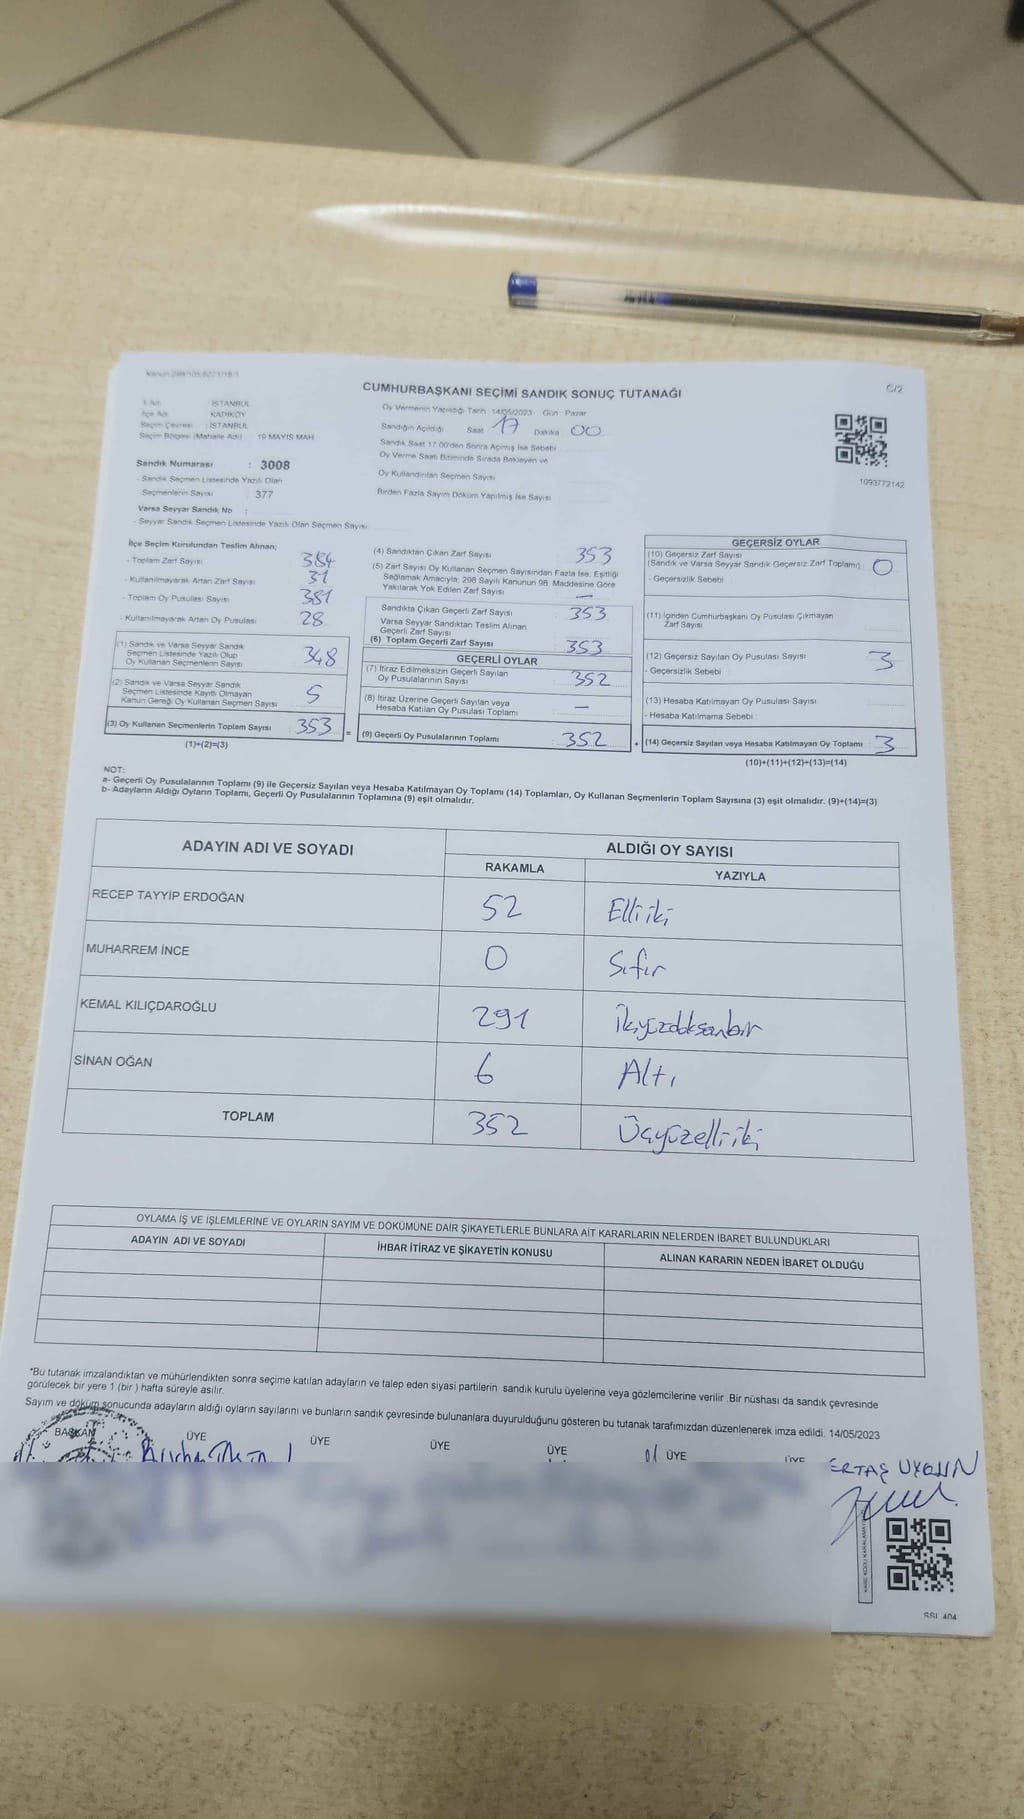 Kanun 298/105,6271/18-1
CUMHURBAŞKANI SEÇİMİ SANDIK SONUÇ TUTANAĞI
C/2
İl Adı : İSTANBUL
İlçe Adı : KADIKÖY
Seçim Çevresi : İSTANBUL
Seçim Bölgesi (Mahalle Adı) : 19 MAYIS MAH
Oy Vermenin Yapıldığı Tarih : 14/05/2023 Gün : Pazar
Sandığın Açıldığı Saat 17 Dakika 00
Sandık Saat 17.00'den Sonra Açılmış İse Sebebi
Oy Verme Saati Bitiminde Sırada Bekleyen ve
Oy Kullandırılan Seçmen Sayısı
Birden Fazla Sayım Döküm Yapılmış İse Sayısı
1093772142
Sandık Numarası : 3008
- Sandık Seçmen Listesinde Yazılı Olan
Seçmenlerin Sayısı : 377
Varsa Seyyar Sandık No :
- Seyyar Sandık Seçmen Listesinde Yazılı Olan Seçmen Sayısı:
İlçe Seçim Kurulundan Teslim Alınan;
- Toplam Zarf Sayısı 384
- Kullanılmayarak Artan Zarf Sayısı 31
- Toplam Oy Pusulası Sayısı 381
- Kullanılmayarak Artan Oy Pusulası 28
(1) Sandık ve Varsa Seyyar Sandık
Seçmen Listesinde Yazılı Olup
Oy Kullanan Seçmenlerin Sayısı 348
(2) Sandık ve Varsa Seyyar Sandık
Seçmen Listesinde Kayıtlı Olmayan
Kanun Gereği Oy Kullanan Seçmen Sayısı 5
(3) Oy Kullanan Seçmenlerin Toplam Sayısı 353 =
(1)+(2)=(3)
(4) Sandıktan Çıkan Zarf Sayısı 353
(5) Zarf Sayısı Oy Kullanan Seçmen Sayısından Fazla İse, Eşitliği
Sağlamak Amacıyla; 298 Sayılı Kanunun 98. Maddesine Göre
Yakılarak Yok Edilen Zarf Sayısı —
Sandıkta Çıkan Geçerli Zarf Sayısı 353
Varsa Seyyar Sandıktan Teslim Alınan
Geçerli Zarf Sayısı
(6) Toplam Geçerli Zarf Sayısı 353
GEÇERLİ OYLAR
(7) İtiraz Edilmeksizin Geçerli Sayılan
Oy Pusulalarının Sayısı 352
(8) İtiraz Üzerine Geçerli Sayılan veya
Hesaba Katılan Oy Pusulası Toplamı —
(9) Geçerli Oy Pusulalarının Toplamı 352 +
GEÇERSİZ OYLAR
(10) Geçersiz Zarf Sayısı
(Sandık ve Varsa Seyyar Sandık Geçersiz Zarf Toplamı) : 0
- Geçersizlik Sebebi :
(11) İçinden Cumhurbaşkanı Oy Pusulası Çıkmayan
Zarf Sayısı
(12) Geçersiz Sayılan Oy Pusulası Sayısı 3
- Geçersizlik Sebebi :
(13) Hesaba Katılmayan Oy Pusulası Sayısı
- Hesaba Katılmama Sebebi :
(14) Geçersiz Sayılan veya Hesaba Katılmayan Oy Toplamı : 3
(10)+(11)+(12)+(13)=(14)
NOT:
a- Geçerli Oy Pusulalarının Toplamı (9) ile Geçersiz Sayılan veya Hesaba Katılmayan Oy Toplamı (14) Toplamları, Oy Kullanan Seçmenlerin Toplam Sayısına (3) eşit olmalıdır. (9)+(14)=(3)
b- Adayların Aldığı Oyların Toplamı, Geçerli Oy Pusulalarının Toplamına (9) eşit olmalıdır.
ADAYIN ADI VE SOYADI ALDIĞI OY SAYISI
RAKAMLA YAZIYLA
RECEP TAYYİP ERDOĞAN 52 Elli iki
MUHARREM İNCE 0 Sıfır
KEMAL KILIÇDAROĞLU 291 ikiyüzdoksanbir
SİNAN OĞAN 6 Altı
TOPLAM 352 Üçyüzelli iki
OYLAMA İŞ VE İŞLEMLERİNE VE OYLARIN SAYIM VE DÖKÜMÜNE DAİR ŞİKAYETLERLE BUNLARA AİT KARARLARIN NELERDEN İBARET BULUNDUKLARI
ADAYIN ADI VE SOYADI İHBAR İTİRAZ VE ŞİKAYETİN KONUSU ALINAN KARARIN NEDEN İBARET OLDUĞU
*Bu tutanak imzalandıktan ve mühürlendikten sonra seçime katılan adayların ve talep eden siyasi partilerin sandık kurulu üyelerine veya gözlemcilerine verilir .Bir nüshası da sandık çevresinde
görülecek bir yere 1 (bir ) hafta süreyle asılır.
Sayım ve döküm sonucunda adayların aldığı oyların sayılarını ve bunların sandık çevresinde bulunanlara duyurulduğunu gösteren bu tutanak tarafımızdan düzenlenerek imza edildi. 14/05/2023
BAŞKAN ÜYE ÜYE ÜYE ÜYE ÜYE ÜYE
SSI 404